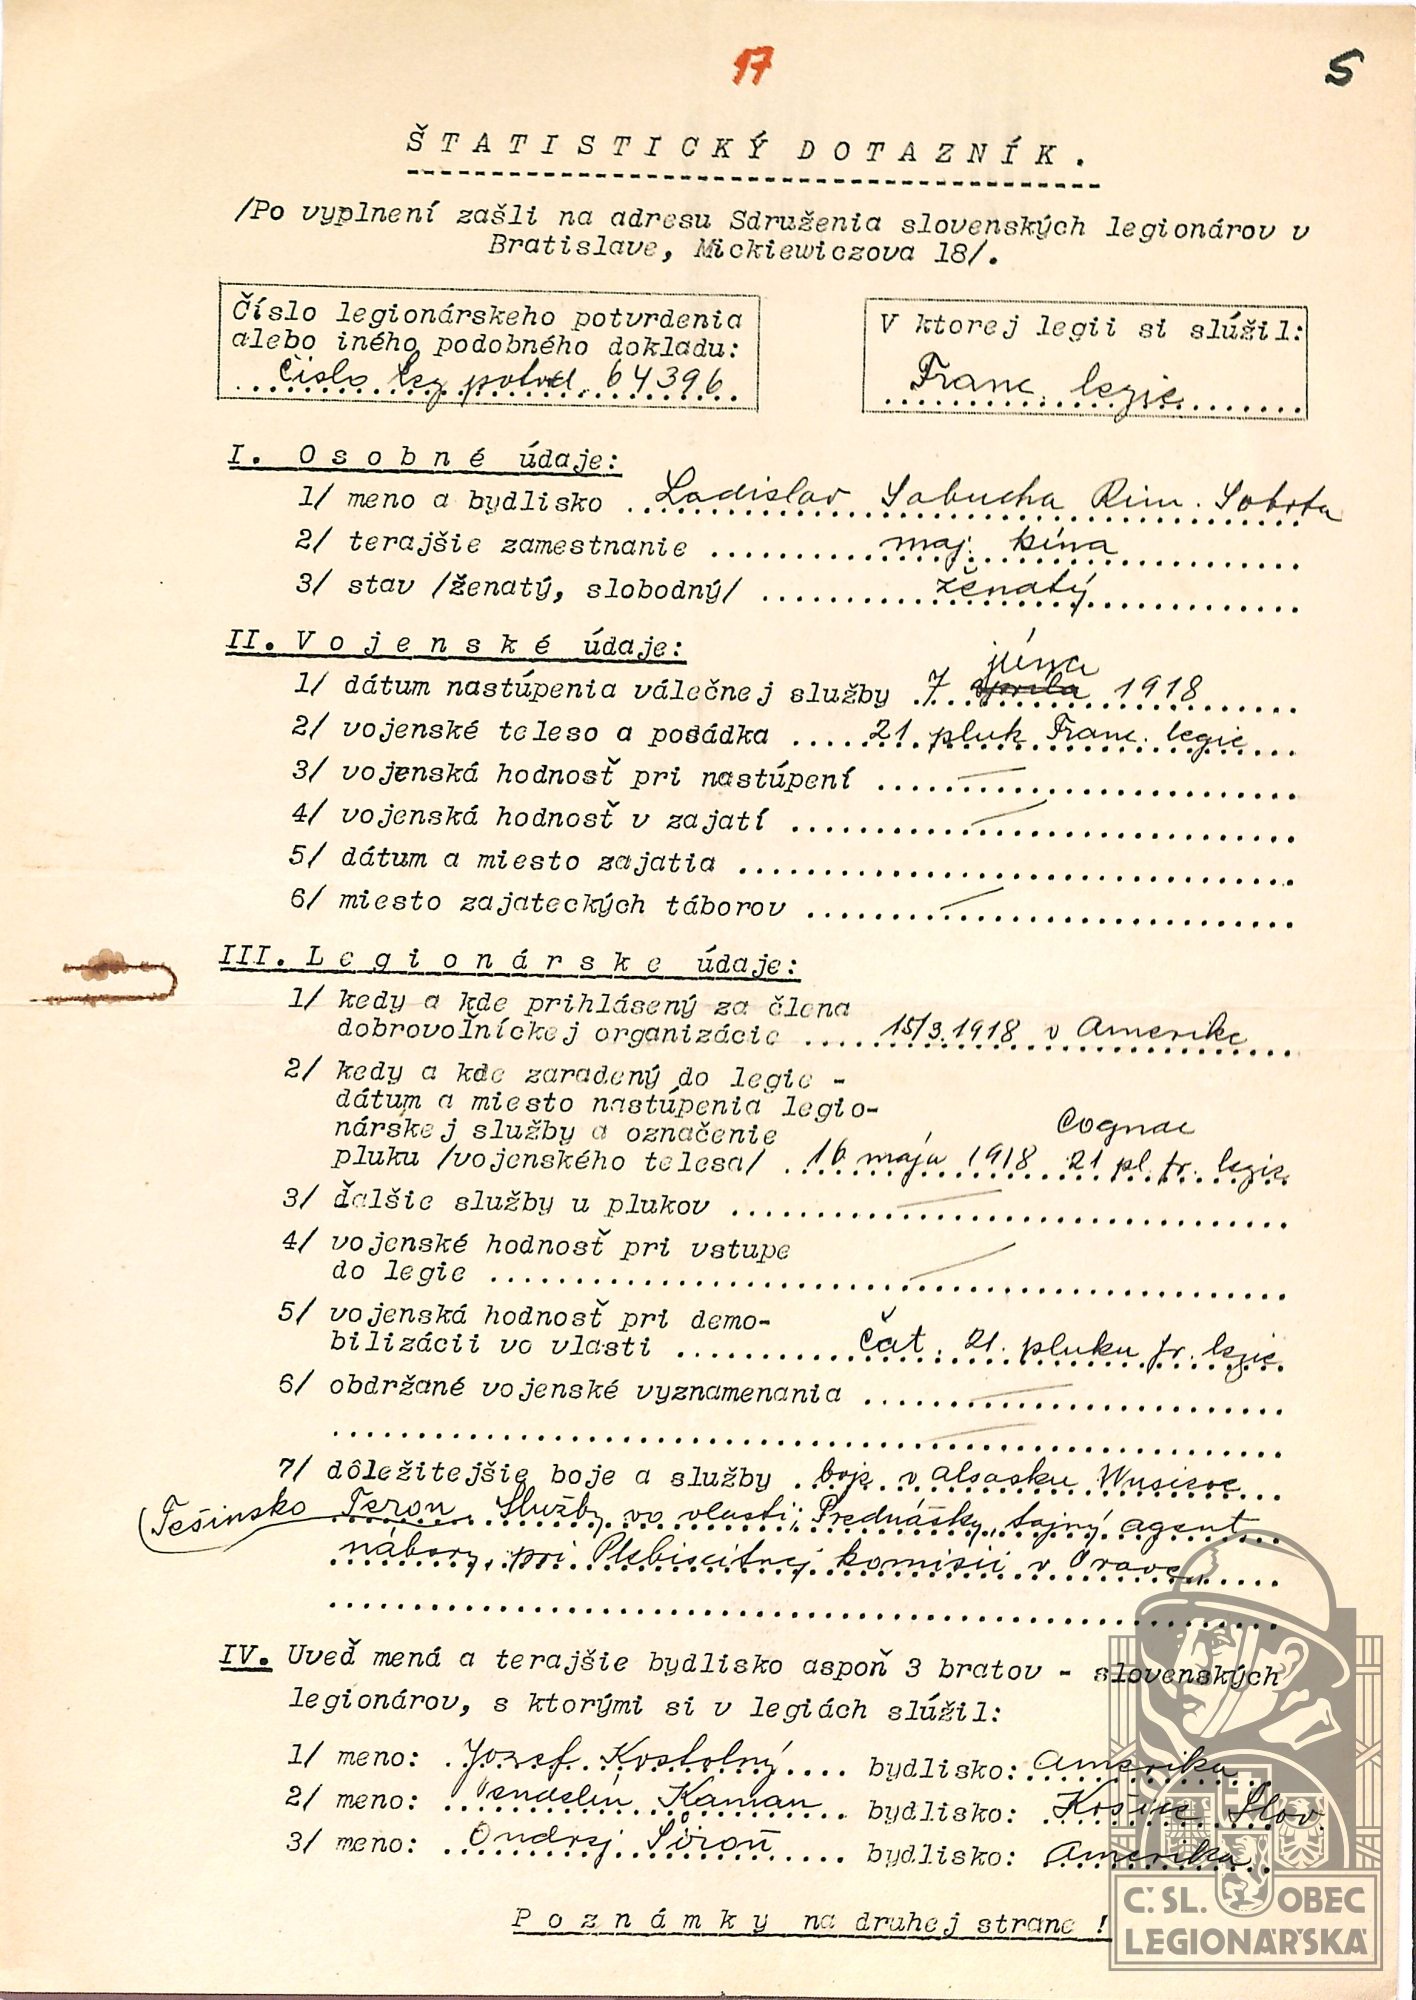 17
5
ŠTATISTICKÝ DOTAZNÍK.
/Po vyplnení zašli na adresu Sdruženia slovenských legionárov v
Bratislave, Mickiewiczova 18/.
Číslo legionárskeho potvrdenia
alebo iného podobného dokladu:
Číslo leg potvd. 64396
V ktorej legii si slúžil:
Franc. legie
I. Osobné údaje:
1/ meno a bydlisko Ladislav Sabucha Rim. Sobota
2/ terajšie zamestnanie maj. kina
3/ stav /ženatý, slobodný/ ženatý
II. Vojenské údaje:
júna
1/ dátum nastúpenia válečnej služby 7 apríla 1918
2/ vojenské teleso a posádka 21. pluk Franc. legie
3/ vojenská hodnosť pri nastúpení
4/ vojenská hodnosť v zajatí
5/ dátum a miesto zajatia
6/ miesto zajateckých táborov
III. Legionárske údaje:
1/ kedy a kde prihlásený za člena
dobrovoľníckej organizácie 15/3.1918 v Amerike
2/ kedy a kde zaradený do legie -
dátum a miesto nastúpenia legio-
nárskej služby a označenie Cognac
pluku /vojenského telesa/ 16 mája 1918 21 pl. fr. legie
3/ ďalšie služby u plukov
4/ vojenské hodnosť pri vstupe
do legie
5/ vojenská hodnosť pri demo-
bilizácii vo vlasti čat. 21. pluku fr. legie
6/ obdržané vojenské vyznamenania
7/ dôležitejšie boje a služby boje v Alsasku
Tešinsko Teron Služby vo vlasti; Prednášky, tajný agent
nábory, pri Plebiscitnej komisii v Orave
IV. Uveď mená a terajšie bydlisko aspoň 3 bratov - slovenských
legionárov, s ktorými si v legiách slúžil:
1/ meno: Jozef Kostolný bydlisko: Amerika
2/ meno: Vendelín Kaman bydlisko: Košice Slov.
3/ meno: Ondrej bydlisko: Amerika
Poznámky na druhej strane!
Č.SL. OBEC
LEGIONÁŘSKÁ